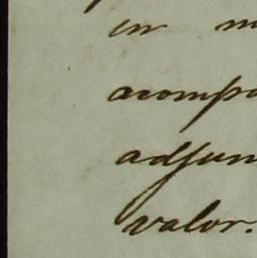 en m
acompa
adjun
valor.